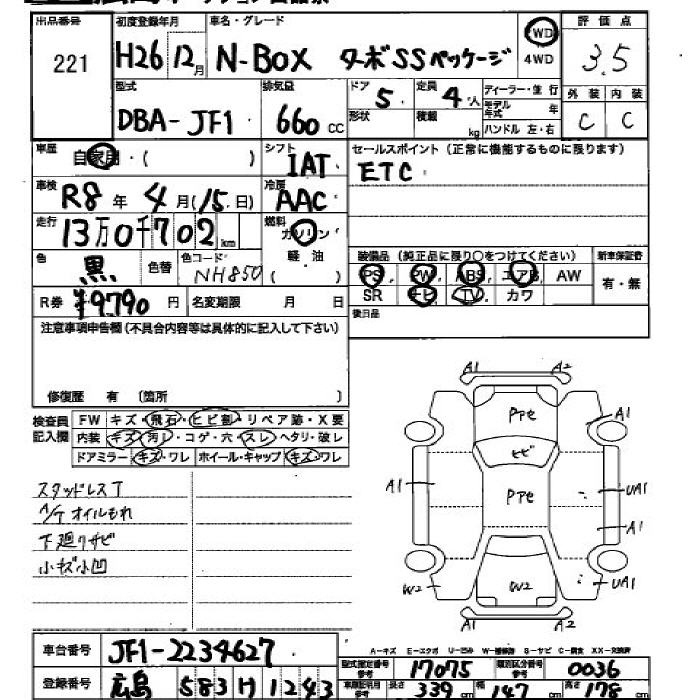 出品番号 初度登録年月 車名・グレード 評価点
221 H26 12月 N-BOX ターボSSパッケージ 2WD 4WD 3.5
型式 排気量 ドア 定員 ディーラー・並行 外装 内装
DBA-JF1 660cc 5 4人 モデル年式 年 C C
形状 積載 kg ハンドル 左・右
車歴 自家用・( ) シフト 1AT セールスポイント (正常に機能するものに限ります)
車検 R8年4月(15日) 冷房 AAC ETC
走行 13万0千702km 燃料 ガソリン 軽・油 ( )
色 黒 色替 色コード NH850 装備品 (純正品に限り○をつけてください) 新車保証書
PS. PW. ABS. エアB AW 有・無
R券 ¥9790円 名変期限 月 日 SR ナビ TV. カワ
注意事項申告欄(不具合内容等は具体的に記入して下さい) 後日品
修復歴 有 〔箇所 〕
検査員記入欄 FW キズ・飛石・ヒビ割・リペア跡・X要
内装 キズ・汚レ・コゲ・穴・スレ・ヘタリ・破レ
ドアミラー キズ・ワレ ホイール・キャップ キズ・ワレ
スタッドレスT
A/T オイルもれ
下廻りサビ
小キズ小凹
A1 A2
PPe A1
ヒビ
A1 PPe UA1
A1
W2 W2 UA1
A2
A-キズ E-エクボ U-凹み W-補修跡 S-サビ C-腐食 XX-交換済
車台番号 JF1-2234627 型式指定番号 参考 17075 類別区分番号 参考 0036
登録番号 広島 583 H 1243 車検証記載 参考 長さ 339cm 幅 147cm 高さ 178cm